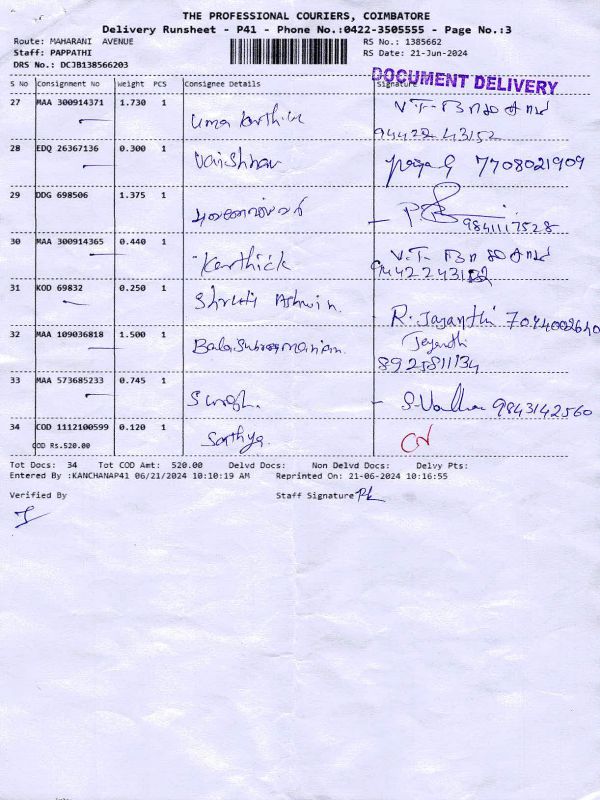 THE PROFESSIONAL COURIERS, COIMBATORE
Delivery Runsheet - P41 - Phone No.:0422-3505555 - Page No.:3
Route: MAHARANI AVENUE RS No.: 1385662
Staff: PAPPATHI RS Date: 21-Jun-2024
DRS No.: DCJB138566203
DOCUMENT DELIVERY
S No Consignment No Weight PCS Consignee Details Signature
27 MAA 300914371 1.730 1 Uma Karthik
94422 43152
28 EDQ 26367136 0.300 1 Vaishnav Priya G 7708021909
29 DDG 698506 1.375 1
9841117528
30 MAA 300914365 0.440 1 Karthick
9442243152
31 KOD 69832 0.250 1 Shruti Ashwin.
R. Jayanthi 7044002640
32 MAA 109036818 1.500 1 Balasubramaniam. Jeyanthi
8925811134
33 MAA 573685233 0.745 1
9843142560
34 COD 1112100599 0.120 1 Sathya.
COD Rs.520.00
Tot Docs: 34 Tot COD Amt: 520.00 Delvd Docs: Non Delvd Docs: Delvy Pts:
Entered By :KANCHANAP41 06/21/2024 10:10:19 AM Reprinted On: 21-06-2024 10:16:55
Verified By Staff Signature